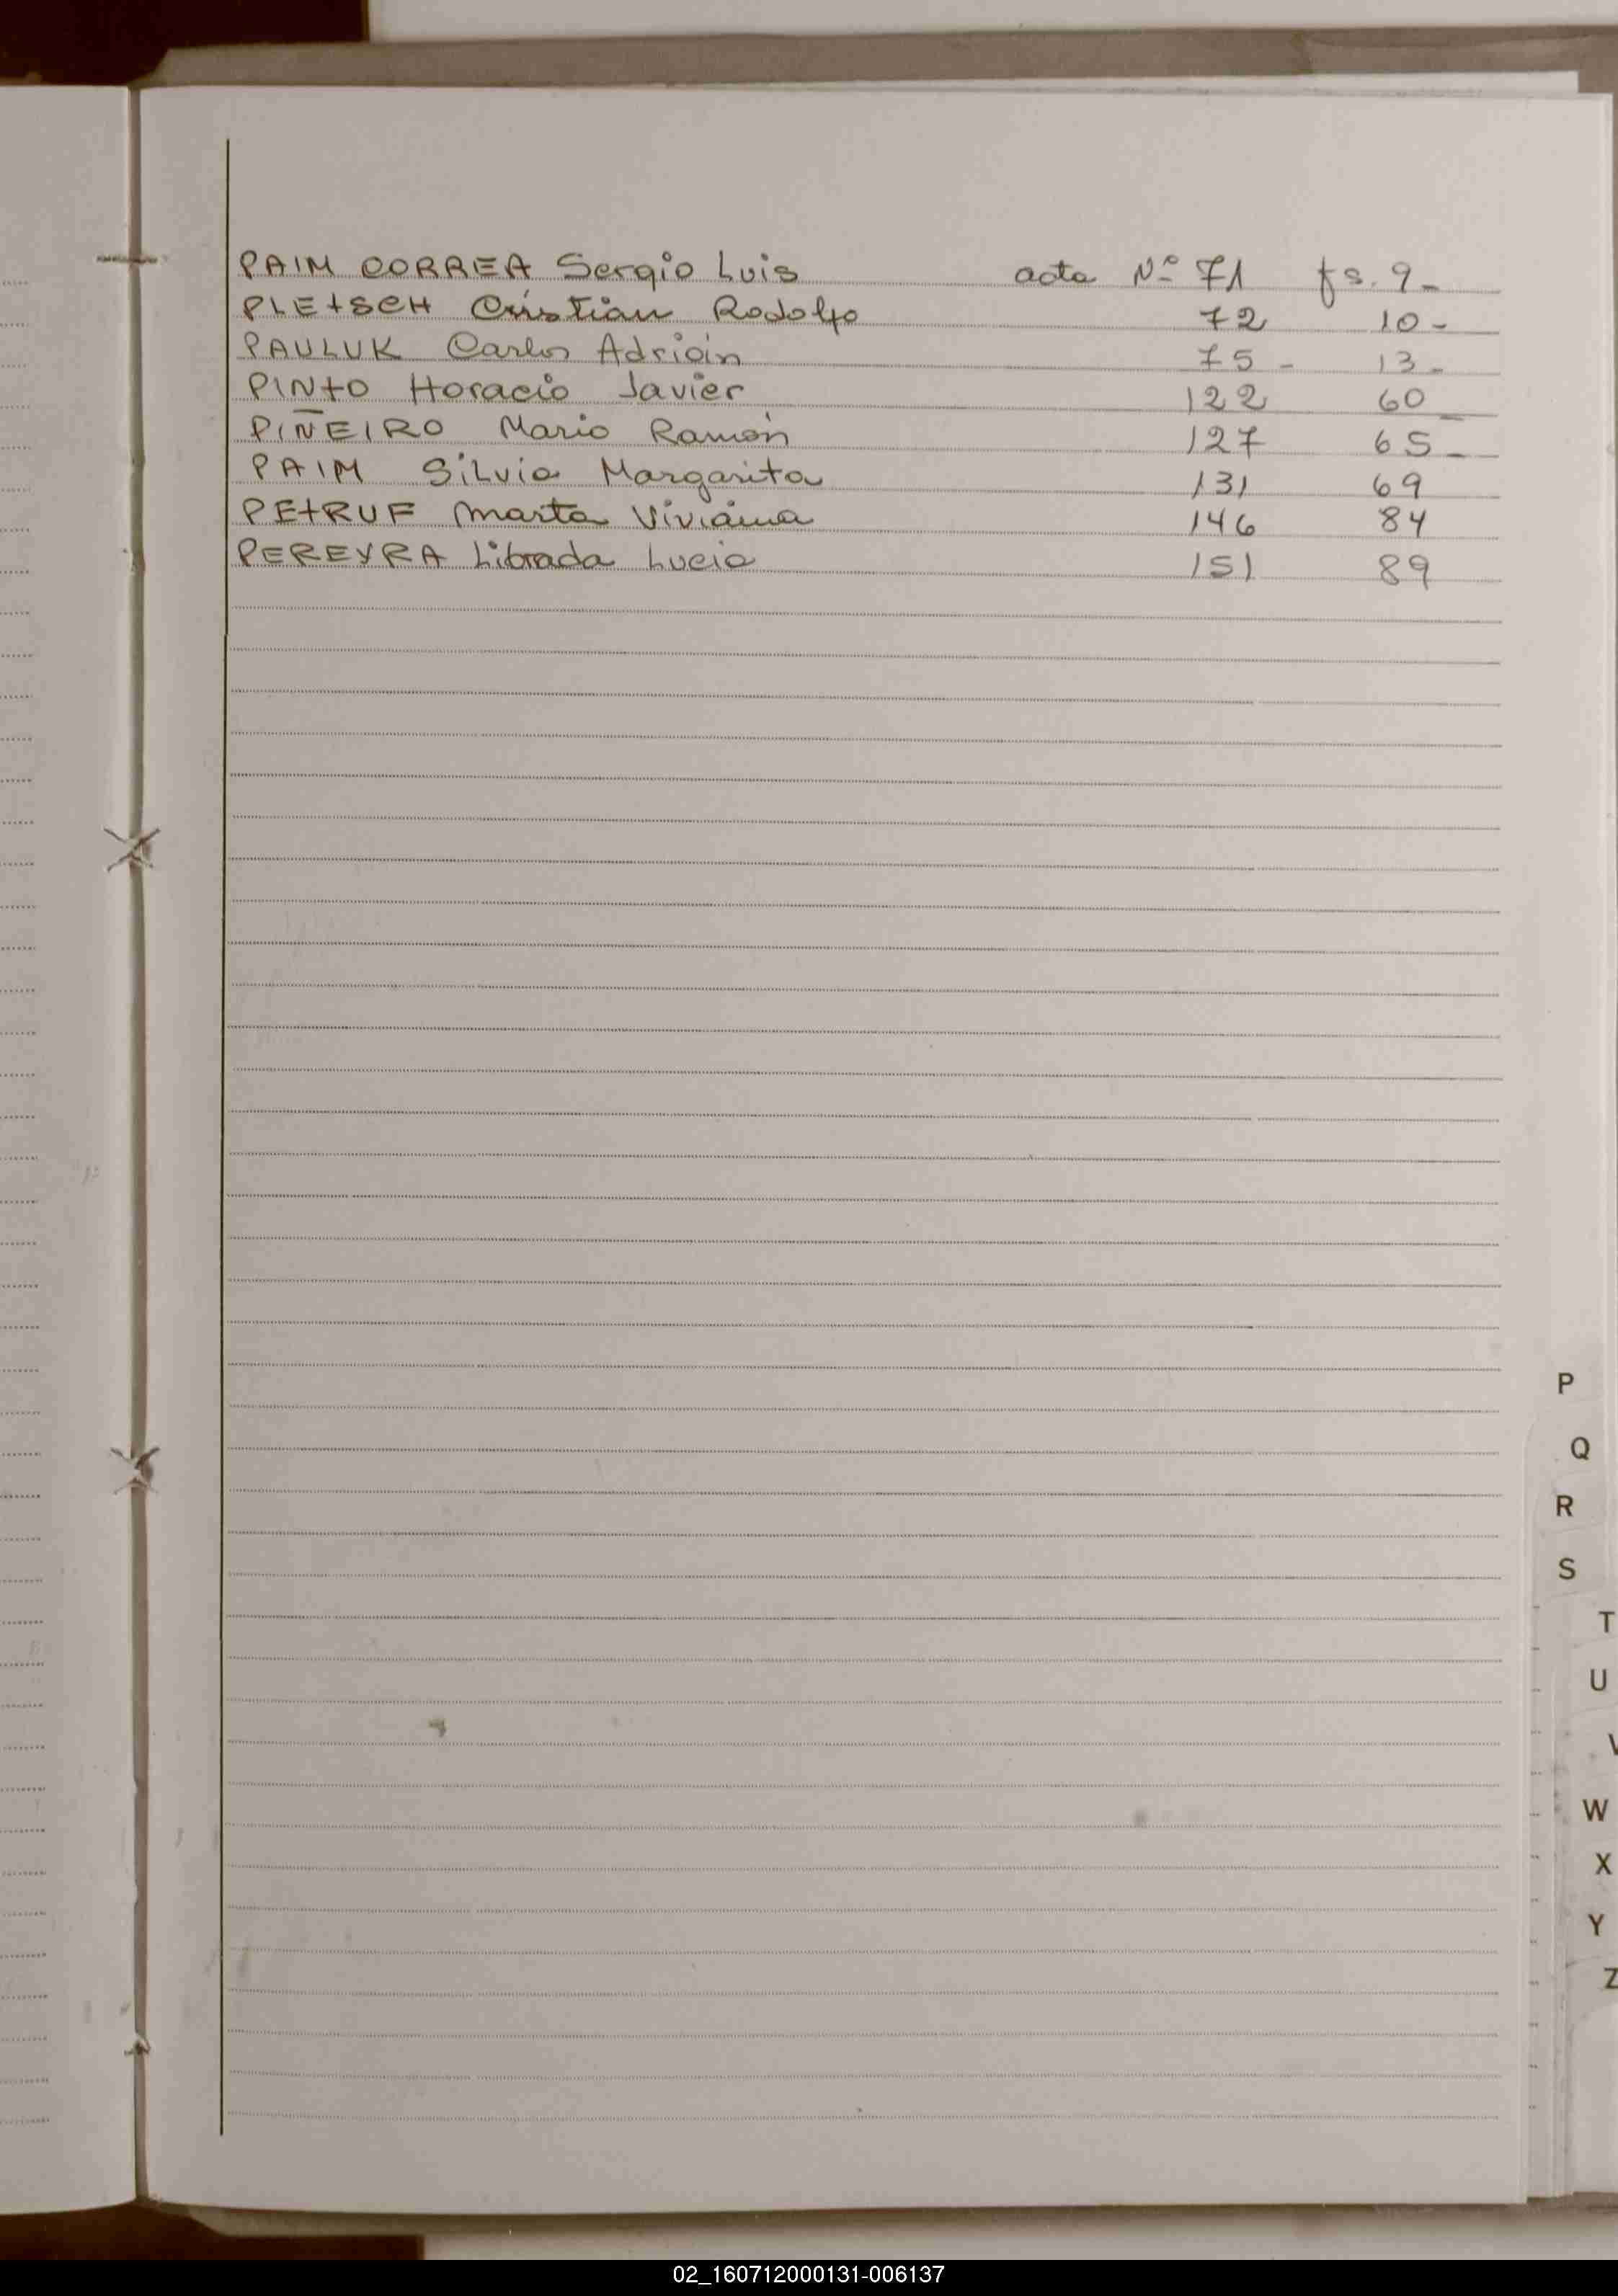 PAIM CORREA Sergio Luis acta Nº 71 fs. 9-
PLEtSCH Cristian Rodolfo 72 10-
PAULUK Carlos Adrián 75- 13-
PINtO Horacio Javier 122 60-
PIÑEIRO Mario Ramón 127 65-
PAIM Silvia Margarita 131 69
PEtRUF Marta Viviana 146 84
PEREYRA Librada Lucia 151 89
P
Q
R
S
T
U
V
W
X
Y
Z
02_160712000131-006137